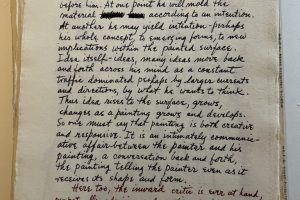 before him. At one point he will mold the
material according to an intention.
At another he may yield intention–perhaps
his whole concept, to emerging forms, to new
implications within the painted surface.
Idea itself–ideas, many ideas move back
and forth across his mind as a constant
traffic dominated perhaps by larger currents
and directions, by what he wants to think.
Thus idea rises to the surface, grows,
changes as a painting grows and develops.
So one must say that painting is both creative
and responsive. It is an intimately communica-
ative affair between the painter and his
painting, a conversation back and forth,
the painting telling the painter even as it
receives its shape and form.
Here too, the inward critic is ever at hand,